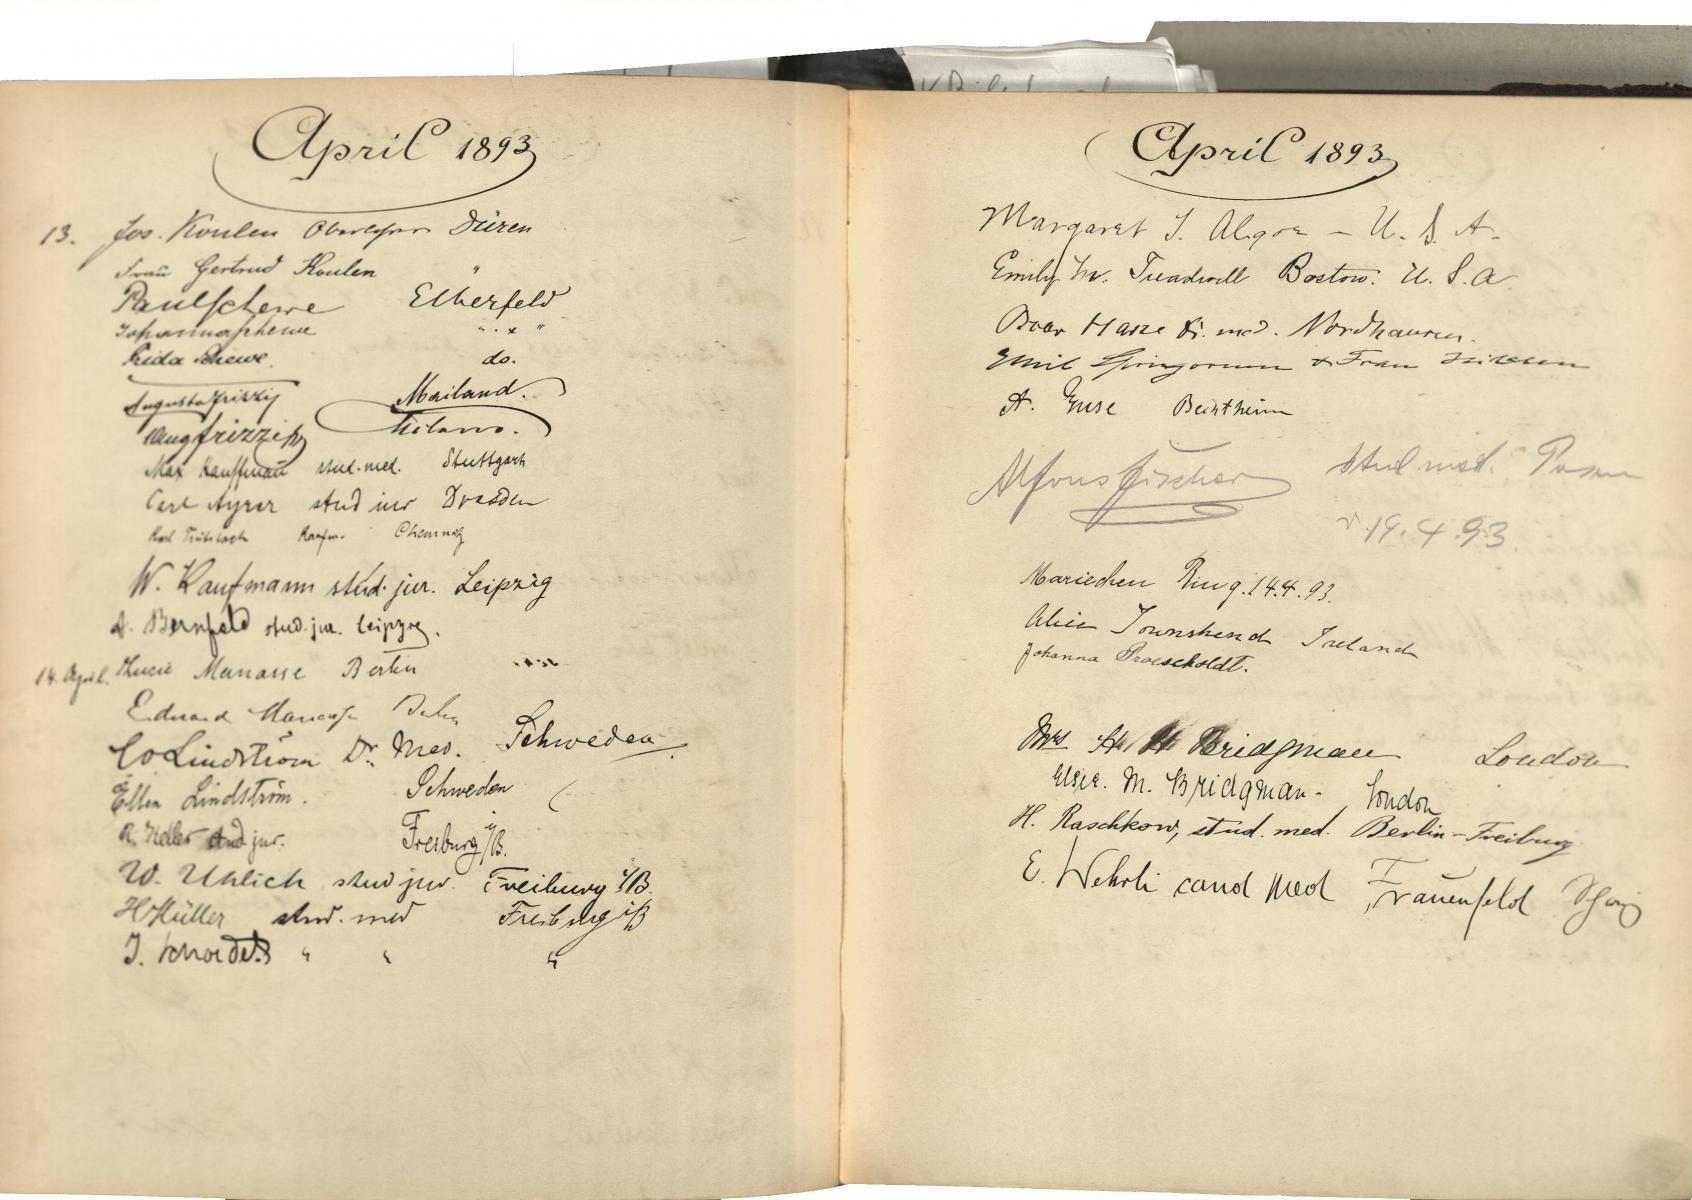 April 1893
13. Jos. Koulen Düren
Frau Gertrud Koulen "
Paul Schewe Elberfeld
Johanna Schewe " "
Frieda Schewe. do.
Augusta Frizzi Mailand.
Aug Frizzi Milano.
Max Kauffmann stud. med. Stuttgart
Carl Ayrer stud jur Dresden
Karl Kaufm. Chemnitz
W. Kaufmann stud. jur. Leipzig
A. Bernfeld stud. jur. Leipzig.
14. April. Lucie Manasse Berlin
Eduard Manasse Berlin
Lindström Dr. Med. Schweden.
Ellen Lindström. Schweden
R. Keller stud jur. Freiburg i/B.
W. Uhlich stud jur. Freiburg i/B.
H Müller stud. med Freiburg i/B
J. " " "
April 1893
Margaret J. Algoe - U. S. A.
Emily M. Treadwell Boston. U. S. A
Oscar Hasse Dr. med. Nordhausen.
Emil Springorum & Frau
A. Bentheim
Alfons Fischer stud med. Posen
14.4.93.
Mariechen Ring. 14.4.93.
Alice Townshend Ireland
Johanna Proescholdt.
Mrs H Bridgman London
Elsie. M. Bridgman. London
H. Raschkow, stud. med. Berlin-Freiburg
E. Wehrli cand med Frauenfeld